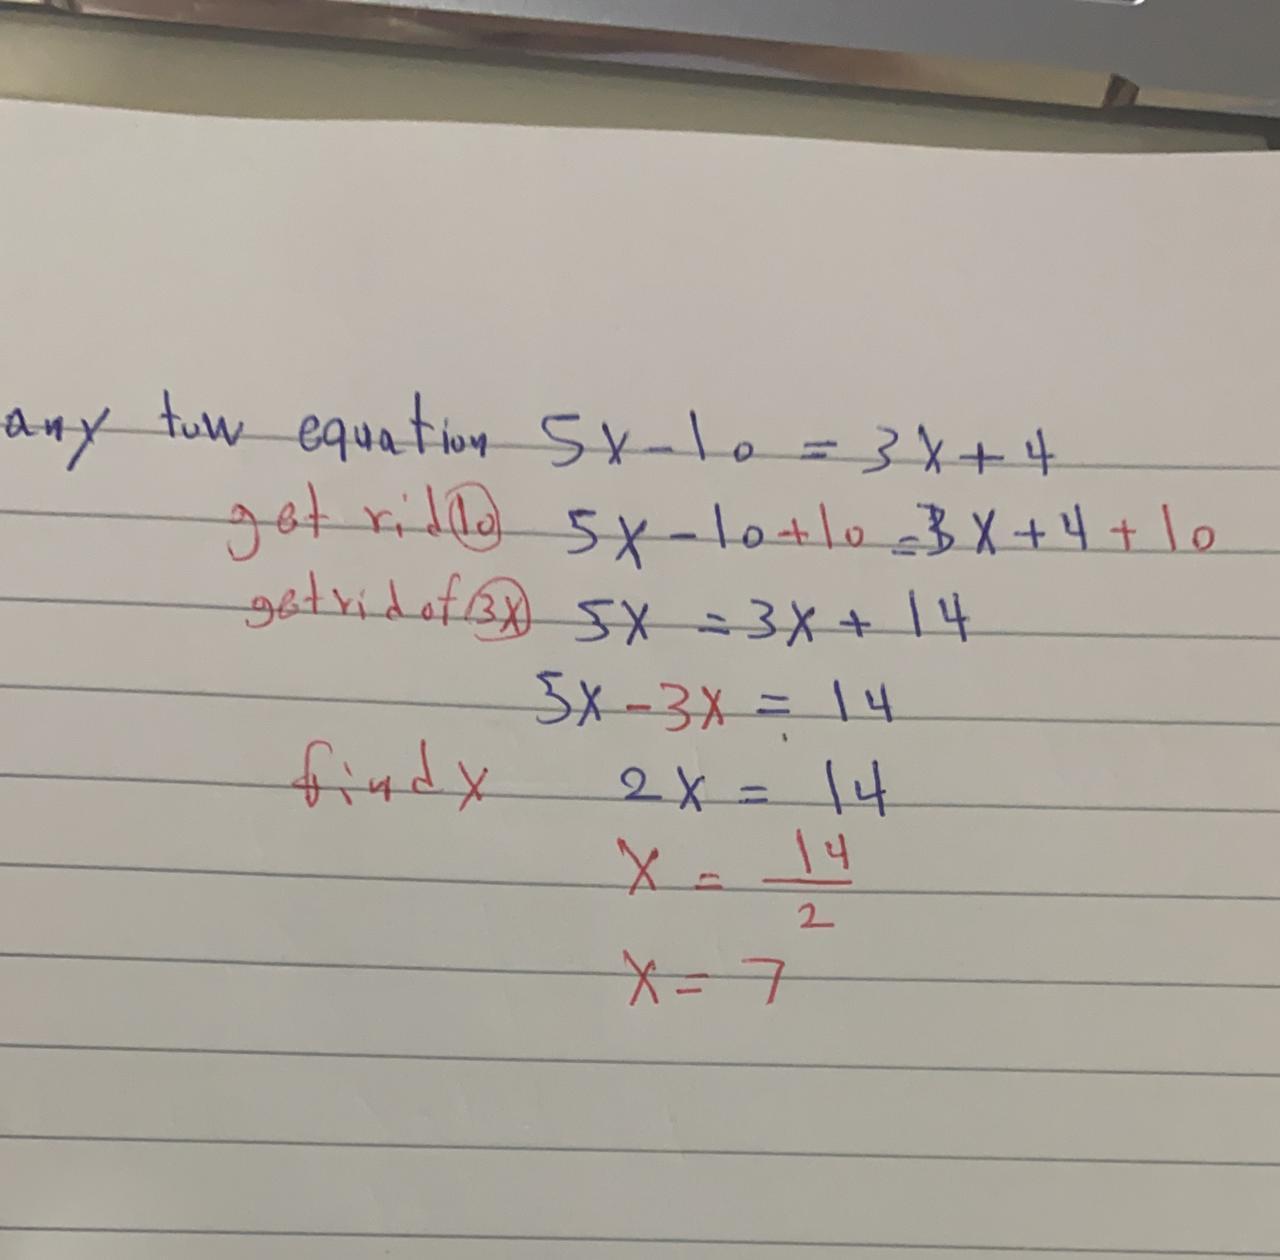 any tow equation 5x-10 = 3x+4
get rid 10 5x-10+10=3x+4+10
get rid of 3x 5x = 3x+14
5x-3x = 14
find x 2x = 14
x = 14/2
x = 7